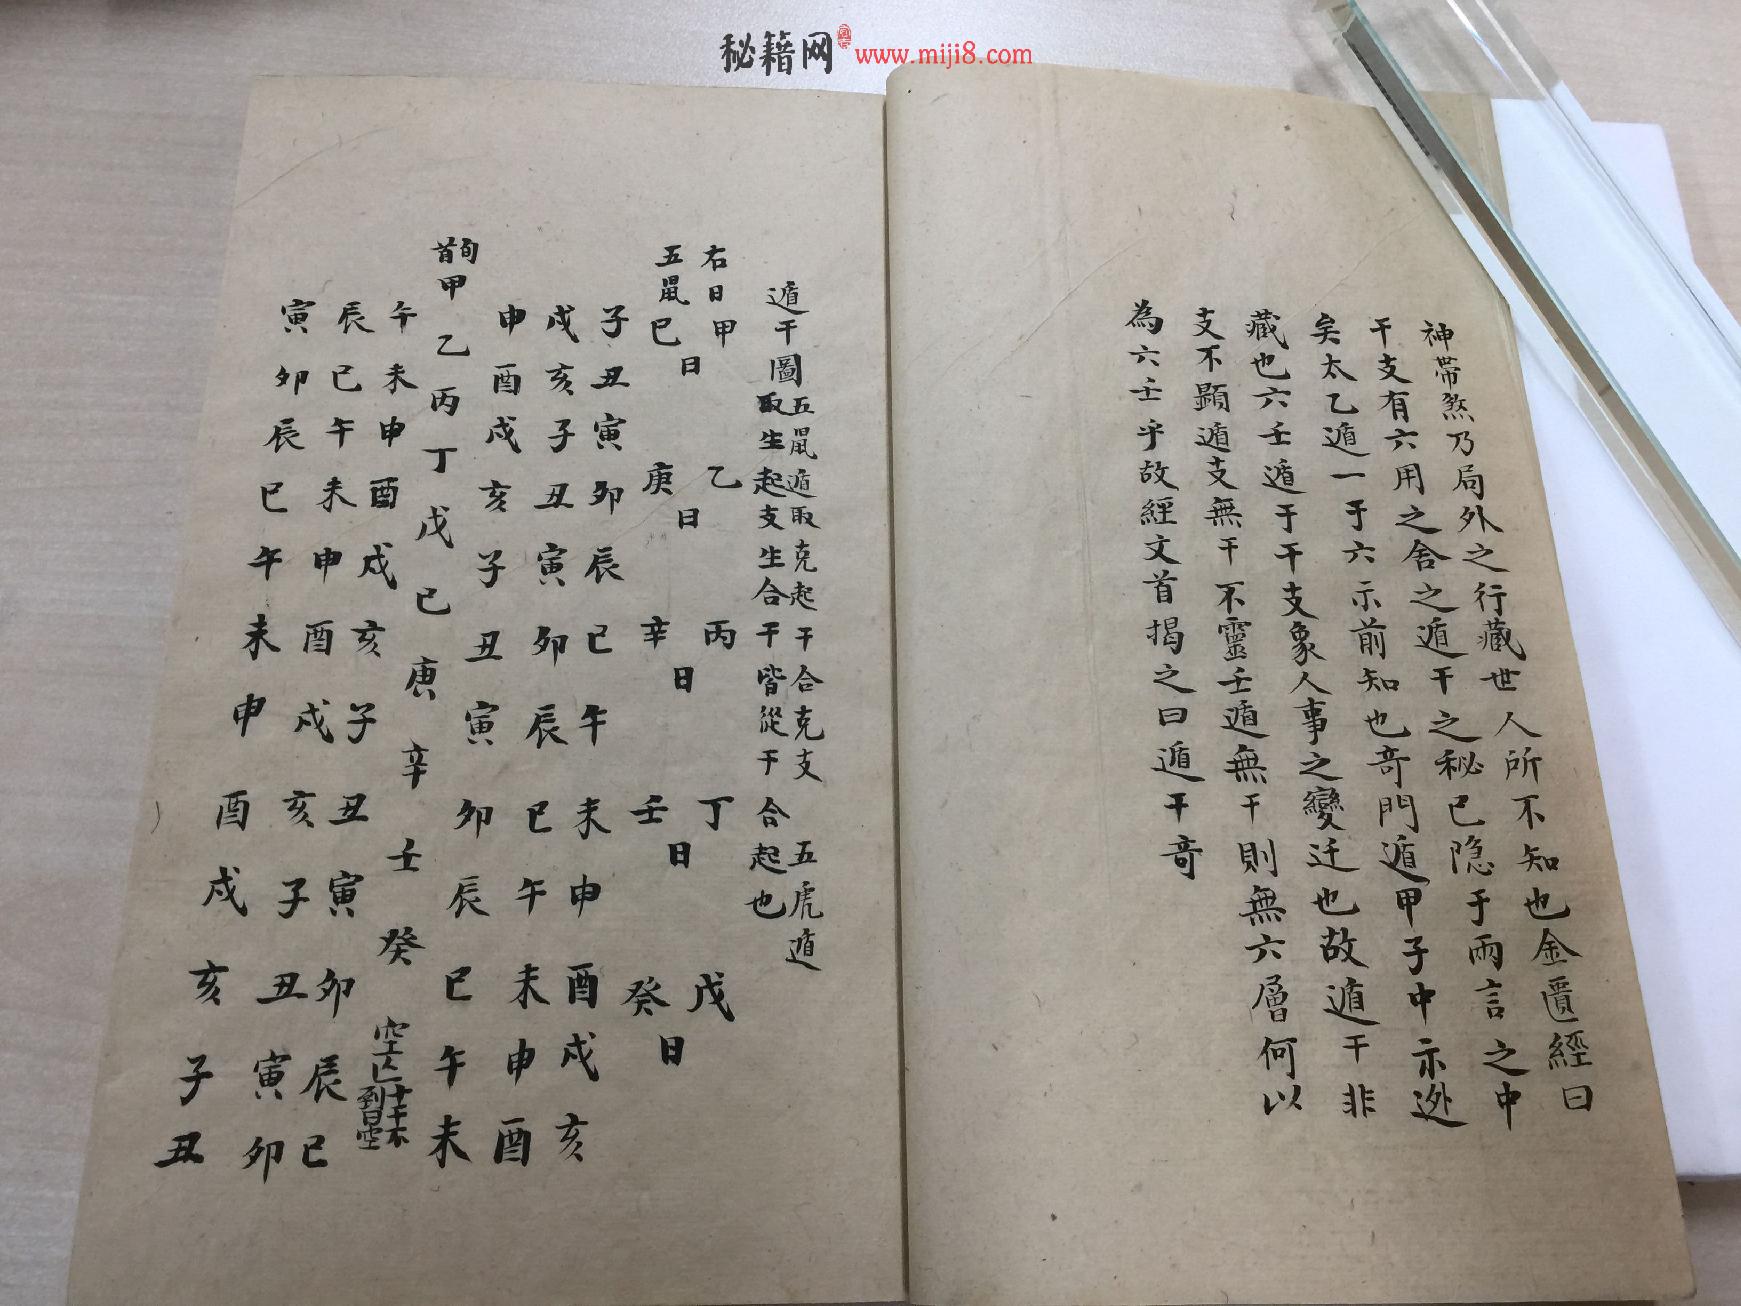 秘籍网 www.miji8.com
神帶煞乃局外之行藏世人所不知也金匱經曰
干支有六用之舍之遁干之秘已隐于兩言之中
矣太乙遁一于六示前知也竒門遁甲子中示迯
藏也六壬遁于干支象人事之變迁也故遁干非
支不顯遁支無干不靈壬遁無干則無六層何以
為六壬乎故經文首揭之曰遁干竒
遁干圖
五鼠遁取克起干合克支 五虎遁
取生起支生合干皆從干合起也
右日甲 乙 丙 丁 戊
日 日 日 日 日
五鼠己 庚 辛 壬 癸
子丑寅夘辰巳午未申酉戌亥
戌亥子丑寅夘辰巳午未申酉
申酉戌亥子丑寅夘辰巳午未
旬首甲乙丙丁戊己庚辛壬癸空亡十干不到曰空
午未申酉戌亥子丑寅夘辰巳
辰巳午未申酉戌亥子丑寅夘
寅夘辰巳午未申酉戌亥子丑